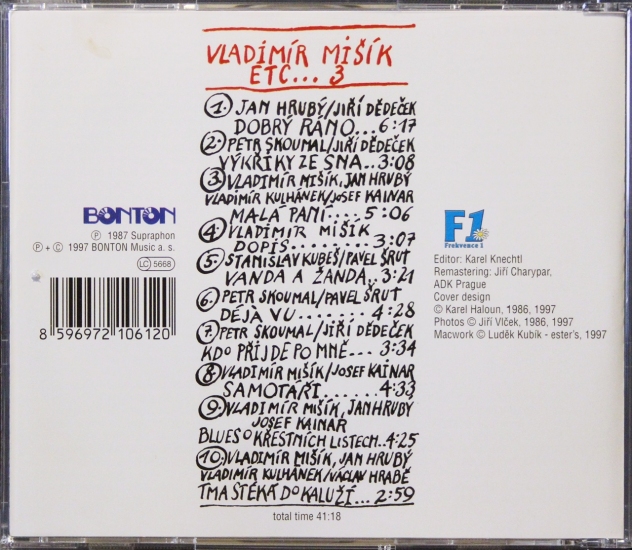 VLADIMÍR MIŠÍK
ETC... 3
1. JAN HRUBÝ/JIŘÍ DĚDEČEK
DOBRÝ RÁNO... 6:17
2. PETR SKOUMAL/JIŘÍ DĚDEČEK
VÝKŘIKY ZE SNA.. 3:08
3. VLADIMÍR MIŠÍK, JAN HRUBÝ
VLADIMÍR KULHÁNEK/JOSEF KAINAR
MALÁ PANI.... 5:06
4. VLADIMÍR MIŠÍK
DOPIS......... 3:07
5. STANISLAV KUBEŠ/PAVEL ŠRUT
VANDA A ŽANDA.. 3:21
6. PETR SKOUMAL/PAVEL ŠRUT
DÉJÀ VU....... 4:28
7. PETR SKOUMAL/JIŘÍ DĚDEČEK
KDO PŘIJDE PO MNĚ... 3:34
8. VLADIMÍR MIŠÍK/JOSEF KAINAR
SAMOTÁŘI.... 4:33
9. VLADIMÍR MIŠÍK, JAN HRUBY
JOSEF KAINAR
BLUES O KŘESTNÍCH LISTECH.. 4:25
10. VLADIMÍR MIŠÍK, JAN HRUBÝ
VLADIMÍR KULHÁNEK/VÁCLAV HRABĚ
TMA STÉKÁ DO KALUŽÍ... 2:59
total time 41:18
BONTON
Ⓟ 1987 Supraphon
Ⓟ + © 1997 BONTON Music a. s.
LC 5668
8 596972 106120
F1
Frekvence 1
Editor: Karel Knechtl
Remastering: Jiří Charypar,
ADK Prague
Cover design
© Karel Haloun, 1986, 1997
Photos © Jiří Vlček, 1986, 1997
Macwork © Luděk Kubík - ester's, 1997